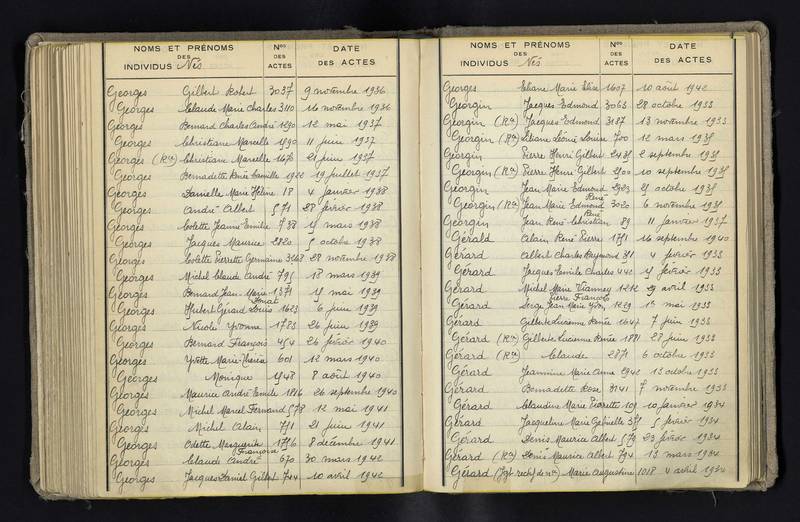 NOMS ET PRÉNOMS
DES
INDIVIDUS Nés
Nos
DES
ACTES
DATE
DES ACTES
Georges Gilbert Robert 3037 9 novembre 1936
Georges Claude Marie Charles 3110 16 novembre 1936
Georges Bernard Charles André 1290 12 mai 1937
Georges Christiane Marcelle 1590 11 juin 1937
Georges (Rn) Christiane Marcelle 1676 21 juin 1937
Georges Bernadette Renée Camille 1922 19 juillet 1937
Georges Danielle Marie Hélène 18 4 janvier 1938
Georges André Albert 571 28 février 1938
Georges Colette Jeanne Emilie 738 mars 1938
Georges Jacques Maurice 2820 5 octobre 1938
Georges Colette Pierrette Germaine 3268 28 novembre 1938
Georges Michel Claude André 795 18 mars 1939
Georges Bernard Jean Marie 1371 mai 1939
Georges Hubert Gérard Louis Donat 1623 6 juin 1939
Georges Nicole Yvonne 1783 26 juin 1939
Georges Bernard François 454 26 février 1940
Georges Yvette Marie-Thérèse 601 12 mars 1940
Georges Monique 1548 8 août 1940
Georges Maurice André Emile 1816 26 septembre 1940
Georges Michel Marcel Fernand 578 12 mai 1941
Georges Michel Alain 791 21 juin 1941
Georges Odette Marguerite Françoise 1776 8 décembre 1941
Georges Claude André 670 30 mars 1942
Georges Jacques Daniel Gilbert 744 10 avril 1942
NOMS ET PRÉNOMS
DES
INDIVIDUS Nés
Nos
DES
ACTES
DATE
DES ACTES
Georges Eliane Marie Elise 1607 10 août 1942
Georgin Jacques Edmond 3063 28 octobre 1933
Georgin (Rn) Jacques Edmond 3187 13 novembre 1933
Georgin (Rn) Liliane Léonie Louise 700 12 mars 1935
Georgin Pierre Henri Gilbert 2435 2 septembre 1935
Georgin (Rn) Pierre Henri Gilbert 2500 10 septembre 1935
Georgin Jean Marie Edmond René 2923 25 octobre 1935
Georgin (Rn) Jean Marie Edmond René 3020 6 novembre 1935
Georgin Jean René Christian 89 11 janvier 1937
Gérald Alain René Pierre 1751 16 septembre 1940
Gérard Albert Charles Raymond 351 4 février 1933
Gérard Jacques Emile Charles 442 février 1933
Gérard Michel Marie Vianney 1212 29 avril 1933
Gérard Serge Jean Marie Yvon Pierre François 1229 1er mai 1933
Gérard Gilberte Lucienne Renée 1647 7 juin 1933
Gérard (Rn) Gilberte Lucienne Renée 1881 28 juin 1933
Gérard (Rn) Claude 2871 6 octobre 1933
Gérard Jeannine Marie Anne 2942 13 octobre 1933
Gérard Bernadette Rose 3141 7 novembre 1933
Gérard Claudine Marie Pierrette 109 10 janvier 1934
Gérard Jacqueline Marie Gabrielle 351 5 février 1934
Gérard Denis Maurice Albert 579 23 février 1934
Gérard (Rn) Denis Maurice Albert 794 13 mars 1934
Gérard (Jgt rectif de nce) Marie Augustine 1018 4 avril 1934